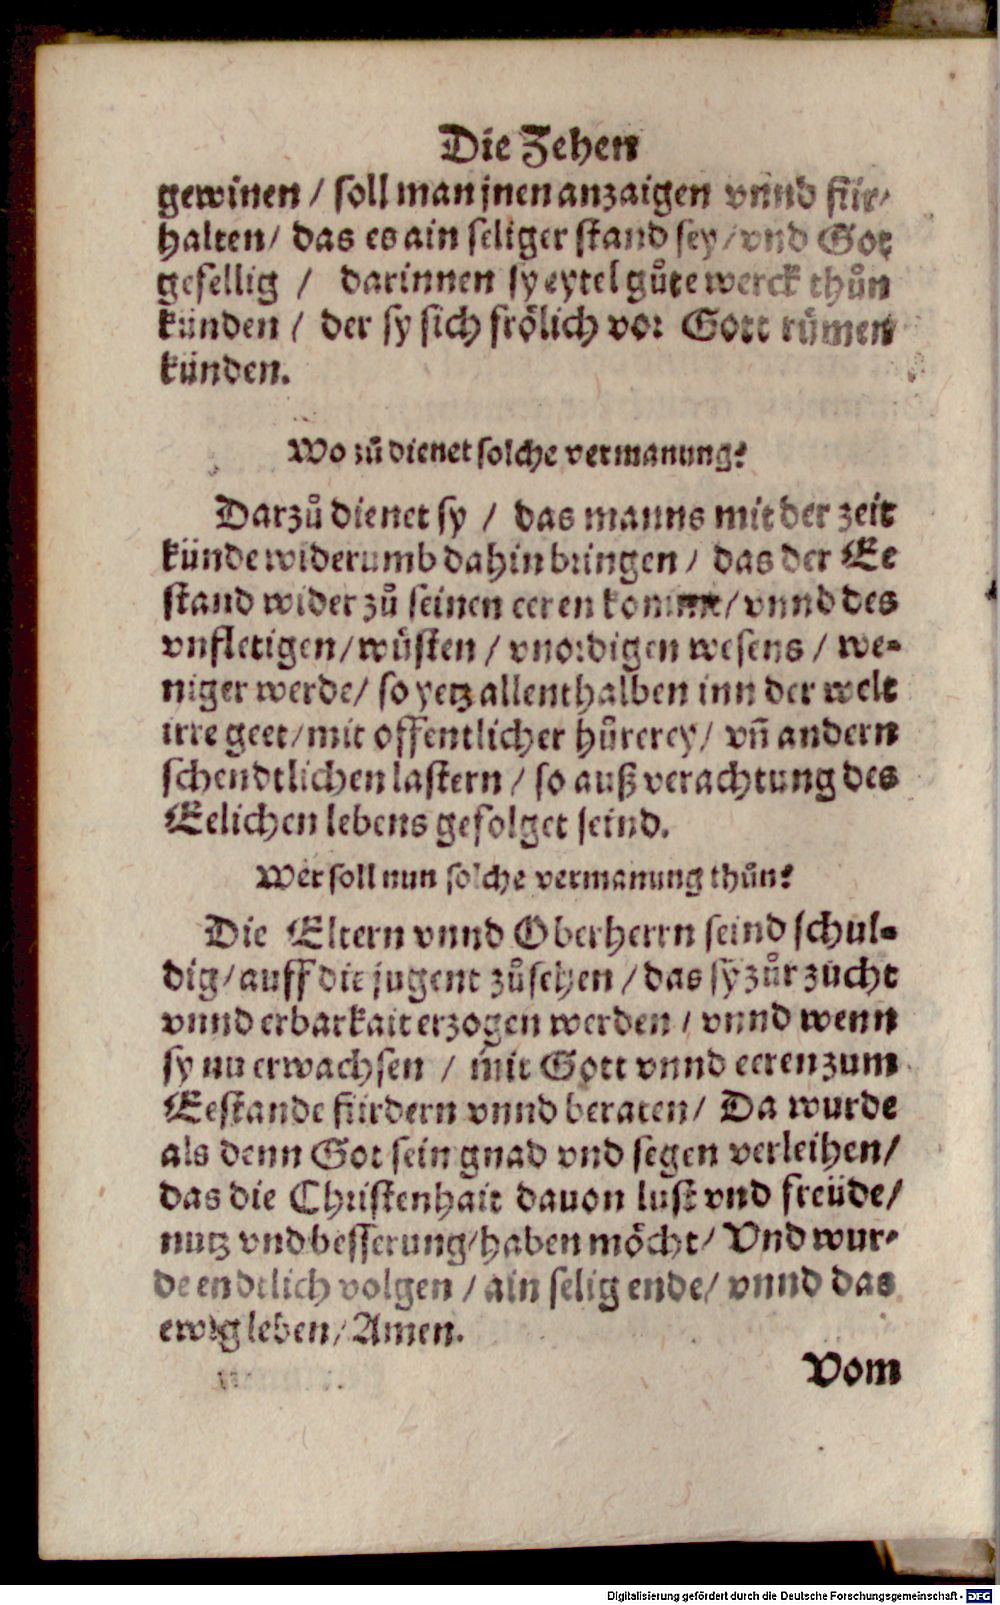 Die Zehen
gewinen / soll man jnen anzaigen vnnd für-
halten / das es ain seliger stand sey / vnd Got
gefellig / darinnen sy eytel gůte werck thůn
künden / der sy sich frölich vor Gott rümen
künden.
Wo zů dienet solche vermanung?
Darzů dienet sy / das manns mit der zeit
künde widerumb dahin bringen / das der Ee
stand wider zů seinen eeren komme / vnnd des
vnfletigen / wüsten / vnordigen wesens / we-
niger werde / so yetz allenthalben inn der welt
irre geet / mit offentlicher hůrerey / vñ andern
schendtlichen lastern / so auß verachtung des
Eelichen lebens gefolget seind.
Wer soll nun solche vermanung thůn?
Die Eltern vnnd Oberherrn seind schul-
dig / auff die jugent zůsehen / das sy zůr zucht
vnnd erbarkait erzogen werden / vnnd wenn
sy nu erwachsen / mit Gott vnnd eeren zum
Eestande fürdern vnnd beraten / Da wurde
als denn Got sein gnad vnd segen verleihen /
das die Christenhait dauon lust vnd freüde /
nutz vnd besserung / haben möcht / Vnd wur-
de endtlich volgen / ain selig ende / vnnd das
ewig leben / Amen.
Vom
Digitalisierung gefördert durch die Deutsche Forschungsgemeinschaft - DFG